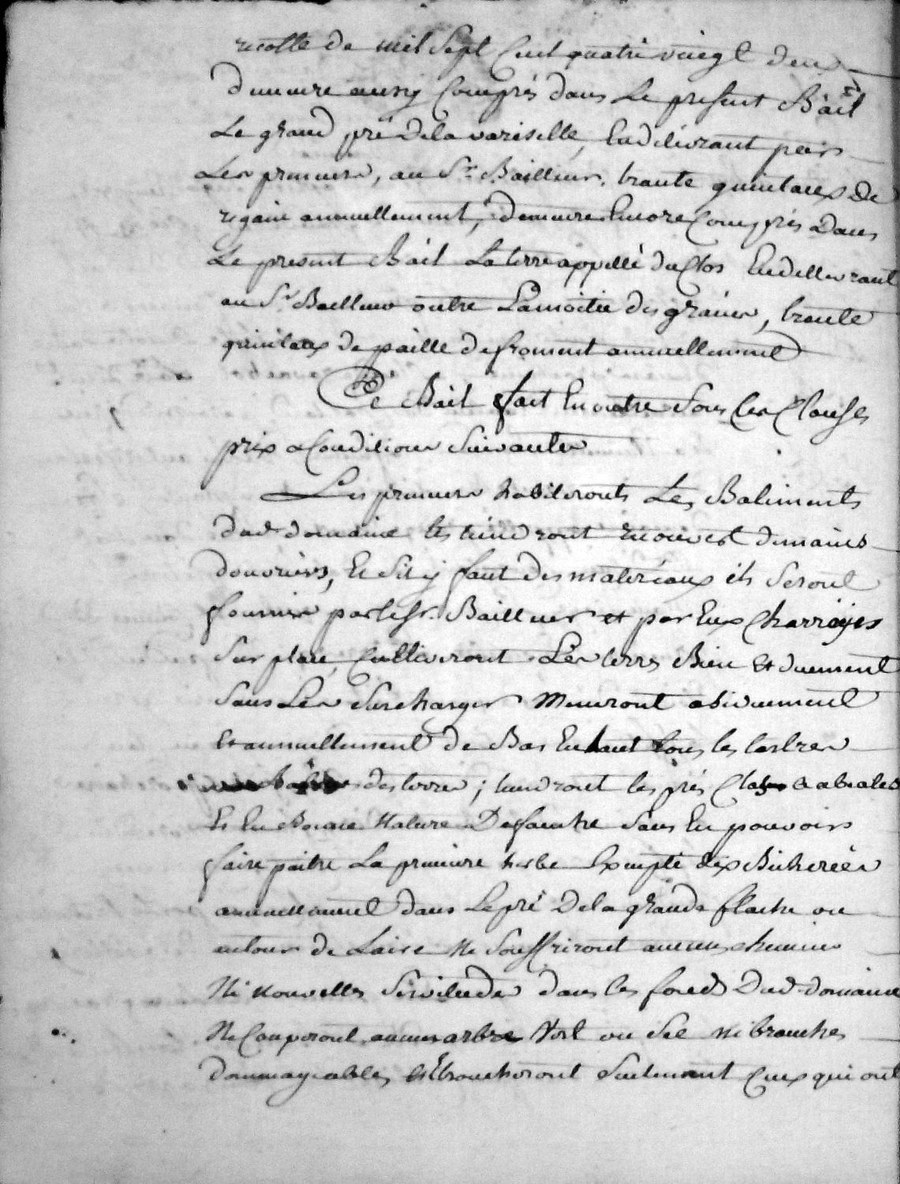 recolte de mil Sept Cent quatre vingt deux
demeure aussy Compris dans Le present Bàil
Le grand pré Dela variselle, En délivrant par
Les preneurs, au Sr. Bailleur, trante quintaux De
regain annuellement, demeure Encore Compris Dans
Le present Bàil La terre appellé du Clos En dellivrant
au Sr Bailleur outre Lamoitié des grains, trante
quintaux de pàille de froment annuellement
Ce Bàil fait En outre Sous les Clauses
prix & Conditions Suivantes
Les preneurs habiteront Les Batiments
dud domaine les tiendront recouvert demains
douvriers, Et Sil y faut des materéaux ils Seront
fournir par led Sr. Bailleur et par Eux Charroyés
Sur place, Cultiveront Les terres Bien Et duement
Sans Les Surcharger Meneront
Et annuellement de Bas En haut tous les
des terres; tiendront les prés
Et En Bonne Nature De faire Sans En pouvoir
faire paitre La premiere herbe Exempté dix Bicherées
annuellement dans Le pré Dela grande flache ou
autour de Laire Ne Souffriront aucuns chemins
Ni nouvelles Servitudes dans les fonds Dud domaine
Ne Couperont aucuns arbre Vert ou Sec ni branches
dommageables, Ebrancheront Seulement Ceux qui ont